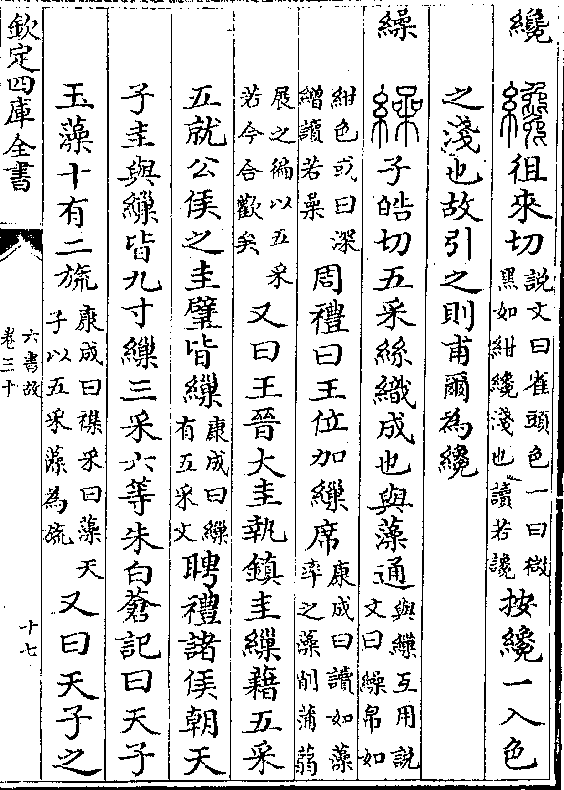 纔
徂來切說文曰雀頭色一曰微黑如紺纔淺也讀若讒按纔一入色
之淺也故引之則甫爾為纔
繰
子皓切五采絲織成也與藻通與繅互用說文曰繰帛如
紺色或曰深繒讀若喿周禮曰王位加繅席康成曰讀如藻率之藻削蒲蒻
展之編以五采若今合歡矣又曰王晉大圭執鎮圭繅藉五采
五就公侯之圭璧皆繅康成曰繅有五采文聘禮諸侯朝天
子圭與繅皆九寸繅三采六等朱白蒼記曰天子
玉藻十有二旒康成曰襍采曰藻天子以五采藻為旒又曰天子之
欽定四庫全書
六書故
卷三十
十七